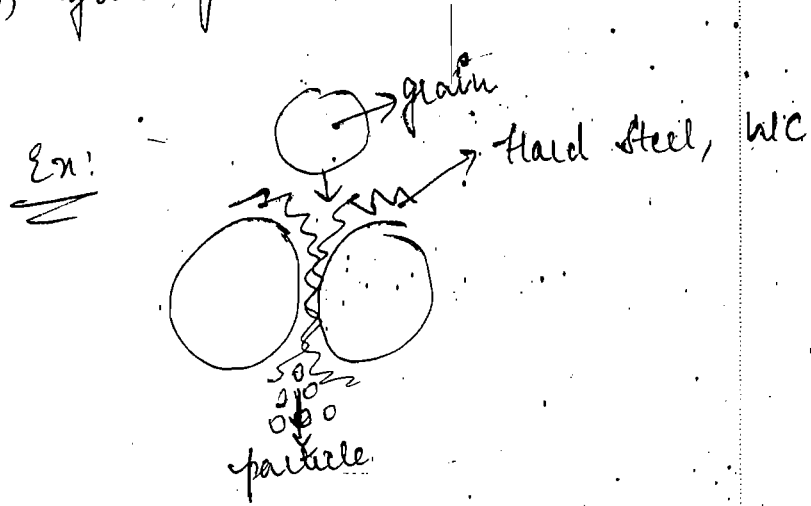 grain
Hard Steel, WC
Ex:
particle